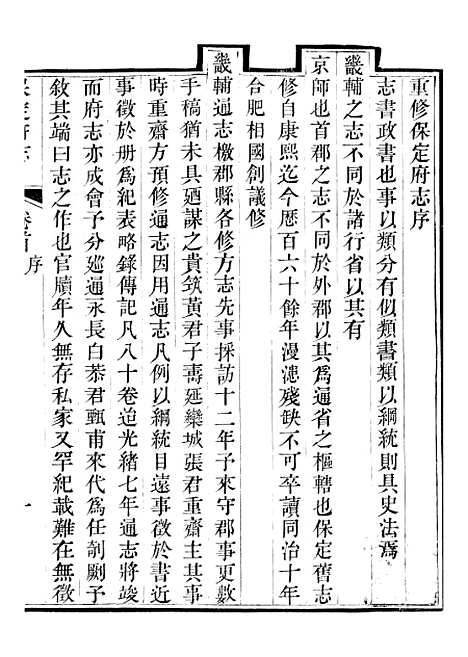 重修保定府志序
志書政書也事以類分有似類書類以綱統則具史法焉
畿輔之志不同於諸行省以其有
京師也首郡之志不同於外郡以其爲通省之樞轄也保定舊志
修自康熙迄今歷百六十餘年漫漶殘缺不可卒讀同治十年
合肥相國創議修
畿輔通志檄郡縣各修方志先事採訪十二年予來守郡事更數
手稿猶未具廼謀之貴筑黃君子壽延欒城張君重齋主其事
時重齋方預修通志因用通志凡例以綱統目遠事徵於書近
事徵於册爲紀表略錄傳記凡八十卷迨光緒七年通志將竣
而府志亦成會予分廵通永長白恭君甄甫來代爲任剞劂予
敘其端曰志之作也官牘年久無存私家又罕紀載難在無徵
保定府志
卷首
序
一